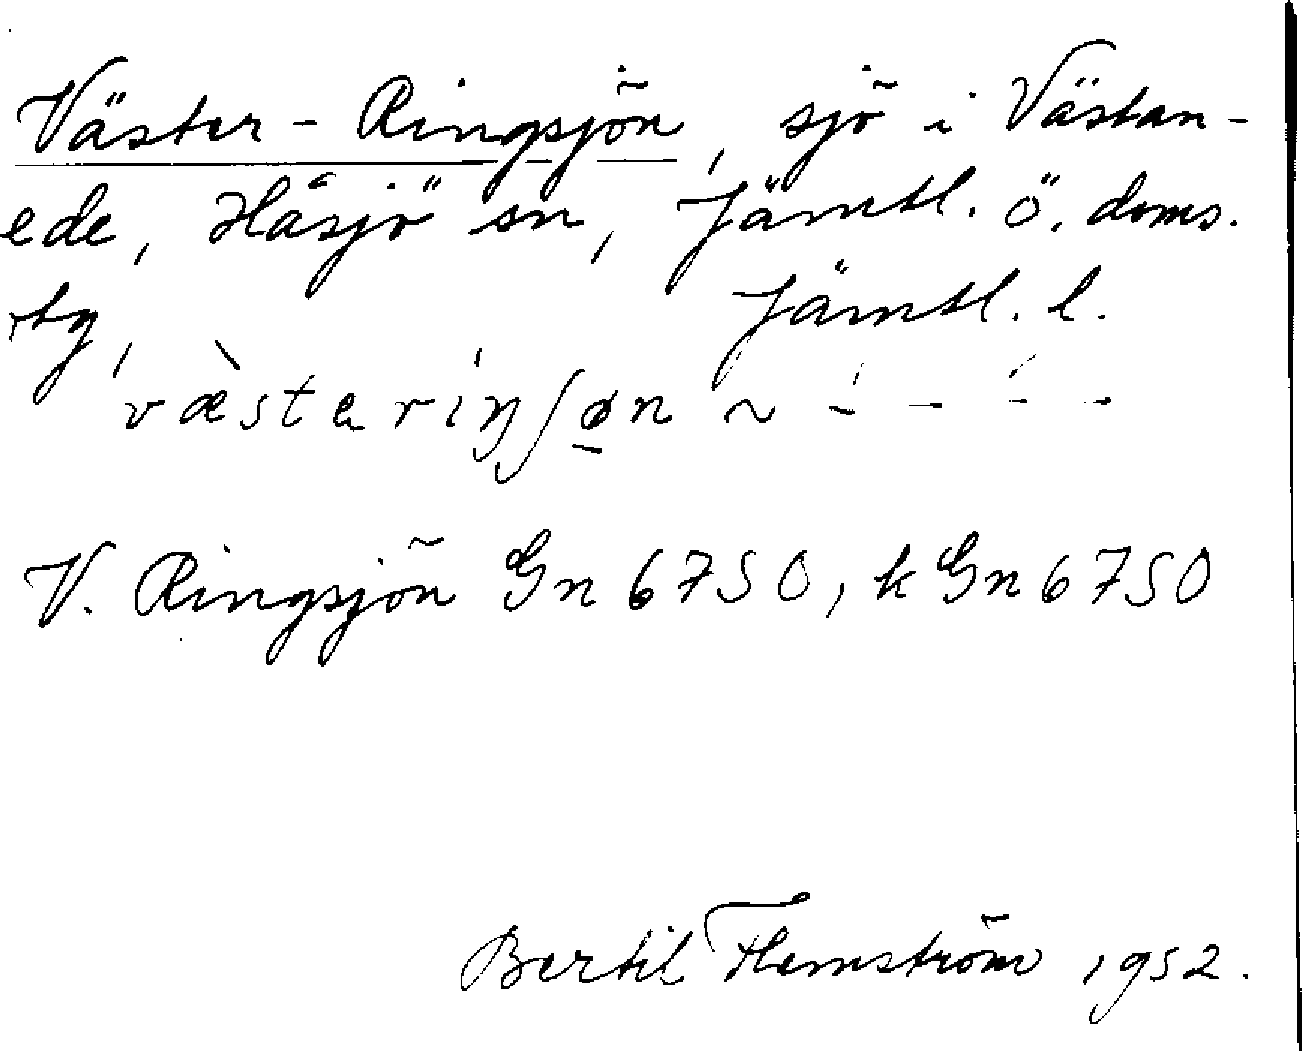 Väster-Ringsjön, sjö i Västan-
ede, Håsjö sn, Jämtl. ö. doms.
tg, Jämtl. l.
væ̀stɑríŋʃø̠n ~
V. Ringsjön Gn 6750, k Gn 6750
Bertil Flemström 1952.